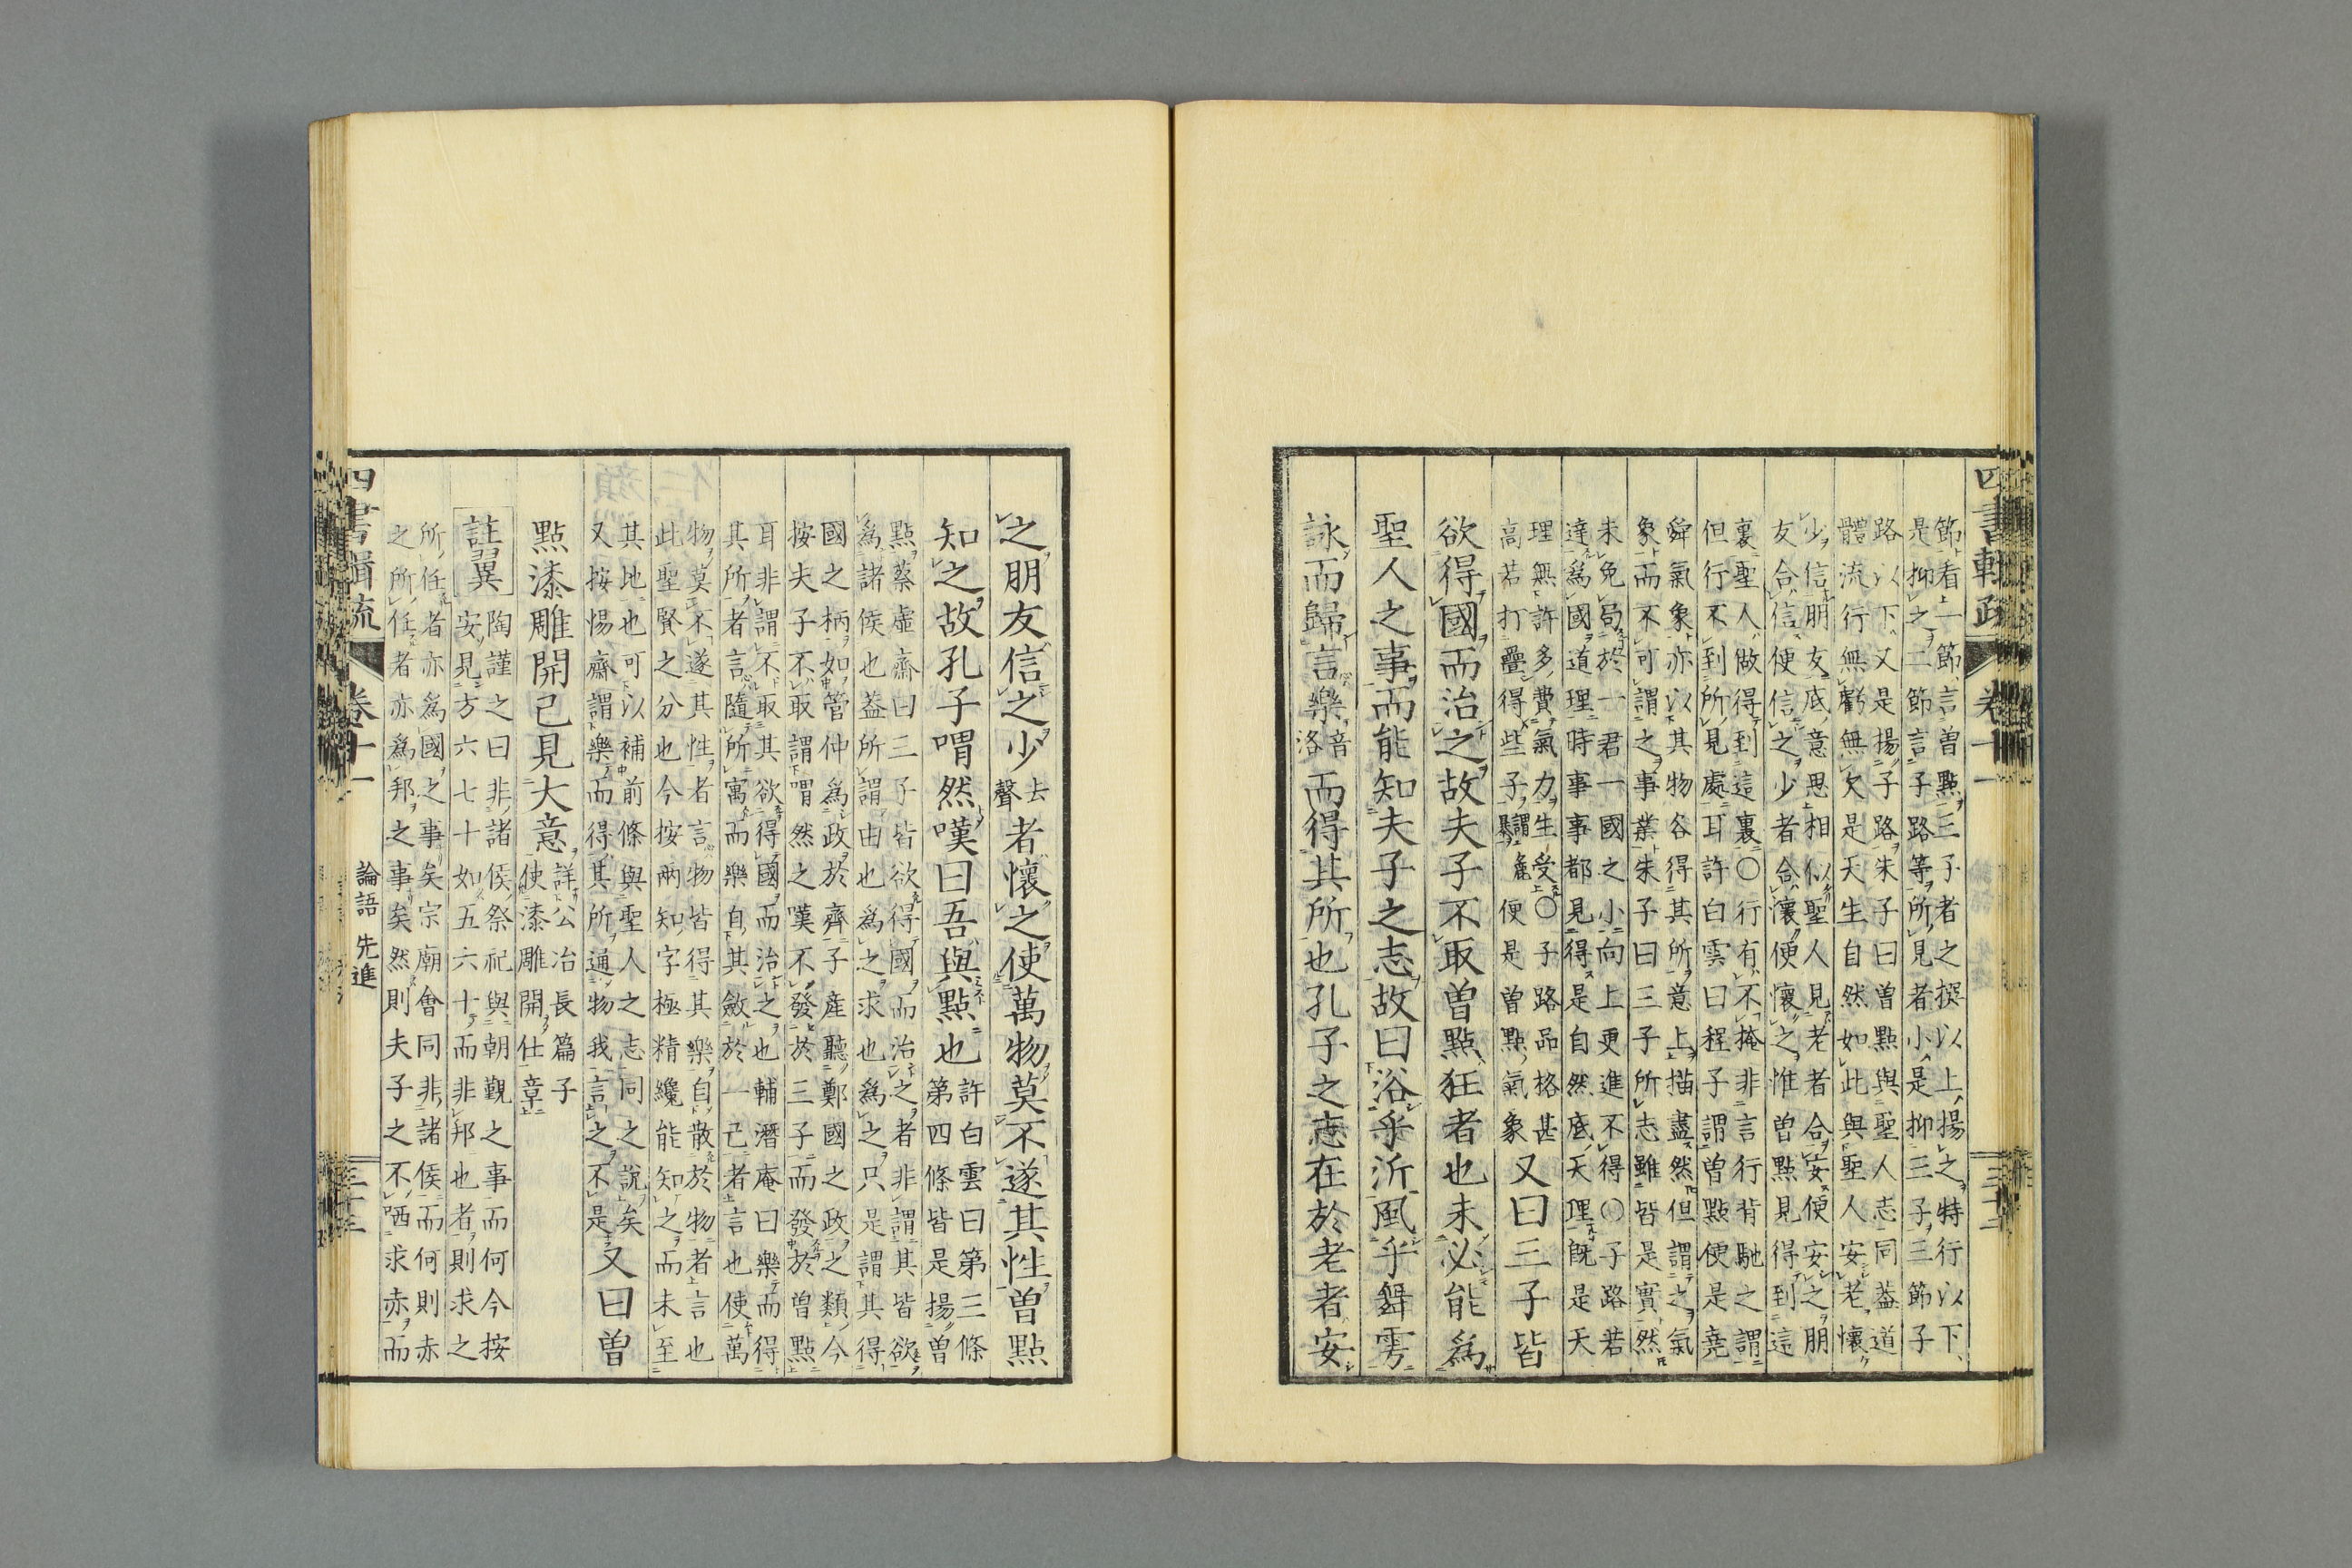 四書輯疏
卷十一
節看上一節言曽點三子者之撰以上揚之特行以下
是抑之二節言子路等所見者小是抑三子三節子
路以下又是揚子路朱子曰曽點與聖人志同葢道
體流行無虧無欠是天生自然如此與聖人安老懷
少信朋友底意思相似聖人見老者合安便安之朋
友合信便信之少者合懷便懷之惟曽點見得到這
裏聖人做得到這裏〇行有不掩非言行背馳之謂
但行不到所見處耳許白雲曰程子謂曽點便是堯
舜氣象亦以其物各得其所意上描盡然但謂之氣
象而不可謂之事業朱子曰三子所志雖皆是實然
未免局於一君一國之小向上更進不得〇子路若
達為國道理時事事都見得是自然底天理旣是天
理無許多費氣力生受〇子路品格甚
高若打疊得些子便是曽點氣象又曰三子皆
欲得國而治之故夫子不取曽點狂者也未必能為
聖人之事而能知夫子之志故曰浴乎沂風乎舞雩
詠而歸言樂音洛而得其所也孔子之志在於老者安
之朋友信之少去聲者懷之使萬物莫不遂其性曽點
知之故孔子喟然嘆曰吾與點也許白雲曰第三條
第四條皆是揚曽
點蔡虛齋曰三子皆欲得國而治之者非謂其皆欲
為諸侯也葢所謂由也為之求也為之只是謂其得
國之柄如管仲為政於齊子產聽鄭國之政之類今
按夫子不取謂喟然之嘆不發於三子而發於曽點
耳非謂不取其欲得國而治之也輔潛庵曰樂而得
其所者言隨所寓而樂自其斂於一己者言也使萬
物莫不遂其性者言物皆得其樂自散於物者言也
此聖賢之分也今按兩知字極精纔能知之而未至
其地也可以補前條與聖人之志同之說矣
又按惕齋謂樂而得其所通物我言之不是又曰曽
點漆雕開已見大意詳公冶長篇子
使漆雕開仕章
註翼陶謹之曰非諸侯祭祀與朝覲之事而何今按
安見方六七十如五六十而非邦也者則求之
所任者亦為國之事矣宗廟會同非諸侯而何則赤
之所任者亦為邦之事矣然則夫子之不哂求赤而
四書輯疏
卷十一
論語 先進
三十三